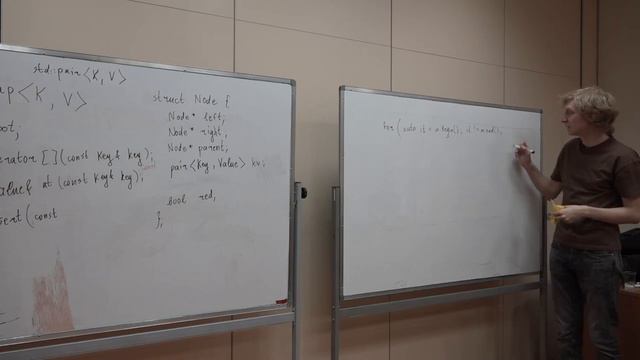 std::pair<K, V>
ap<K, V>
oot;
erator[](const Key& key);
Value& at (const Key& key);
sert(const
struct Node {
Node* left;
Node* right,
Node* parent;
pair<Key, Value> kv;
bool red;
};
for (auto it = m.begin(); it != m.end();